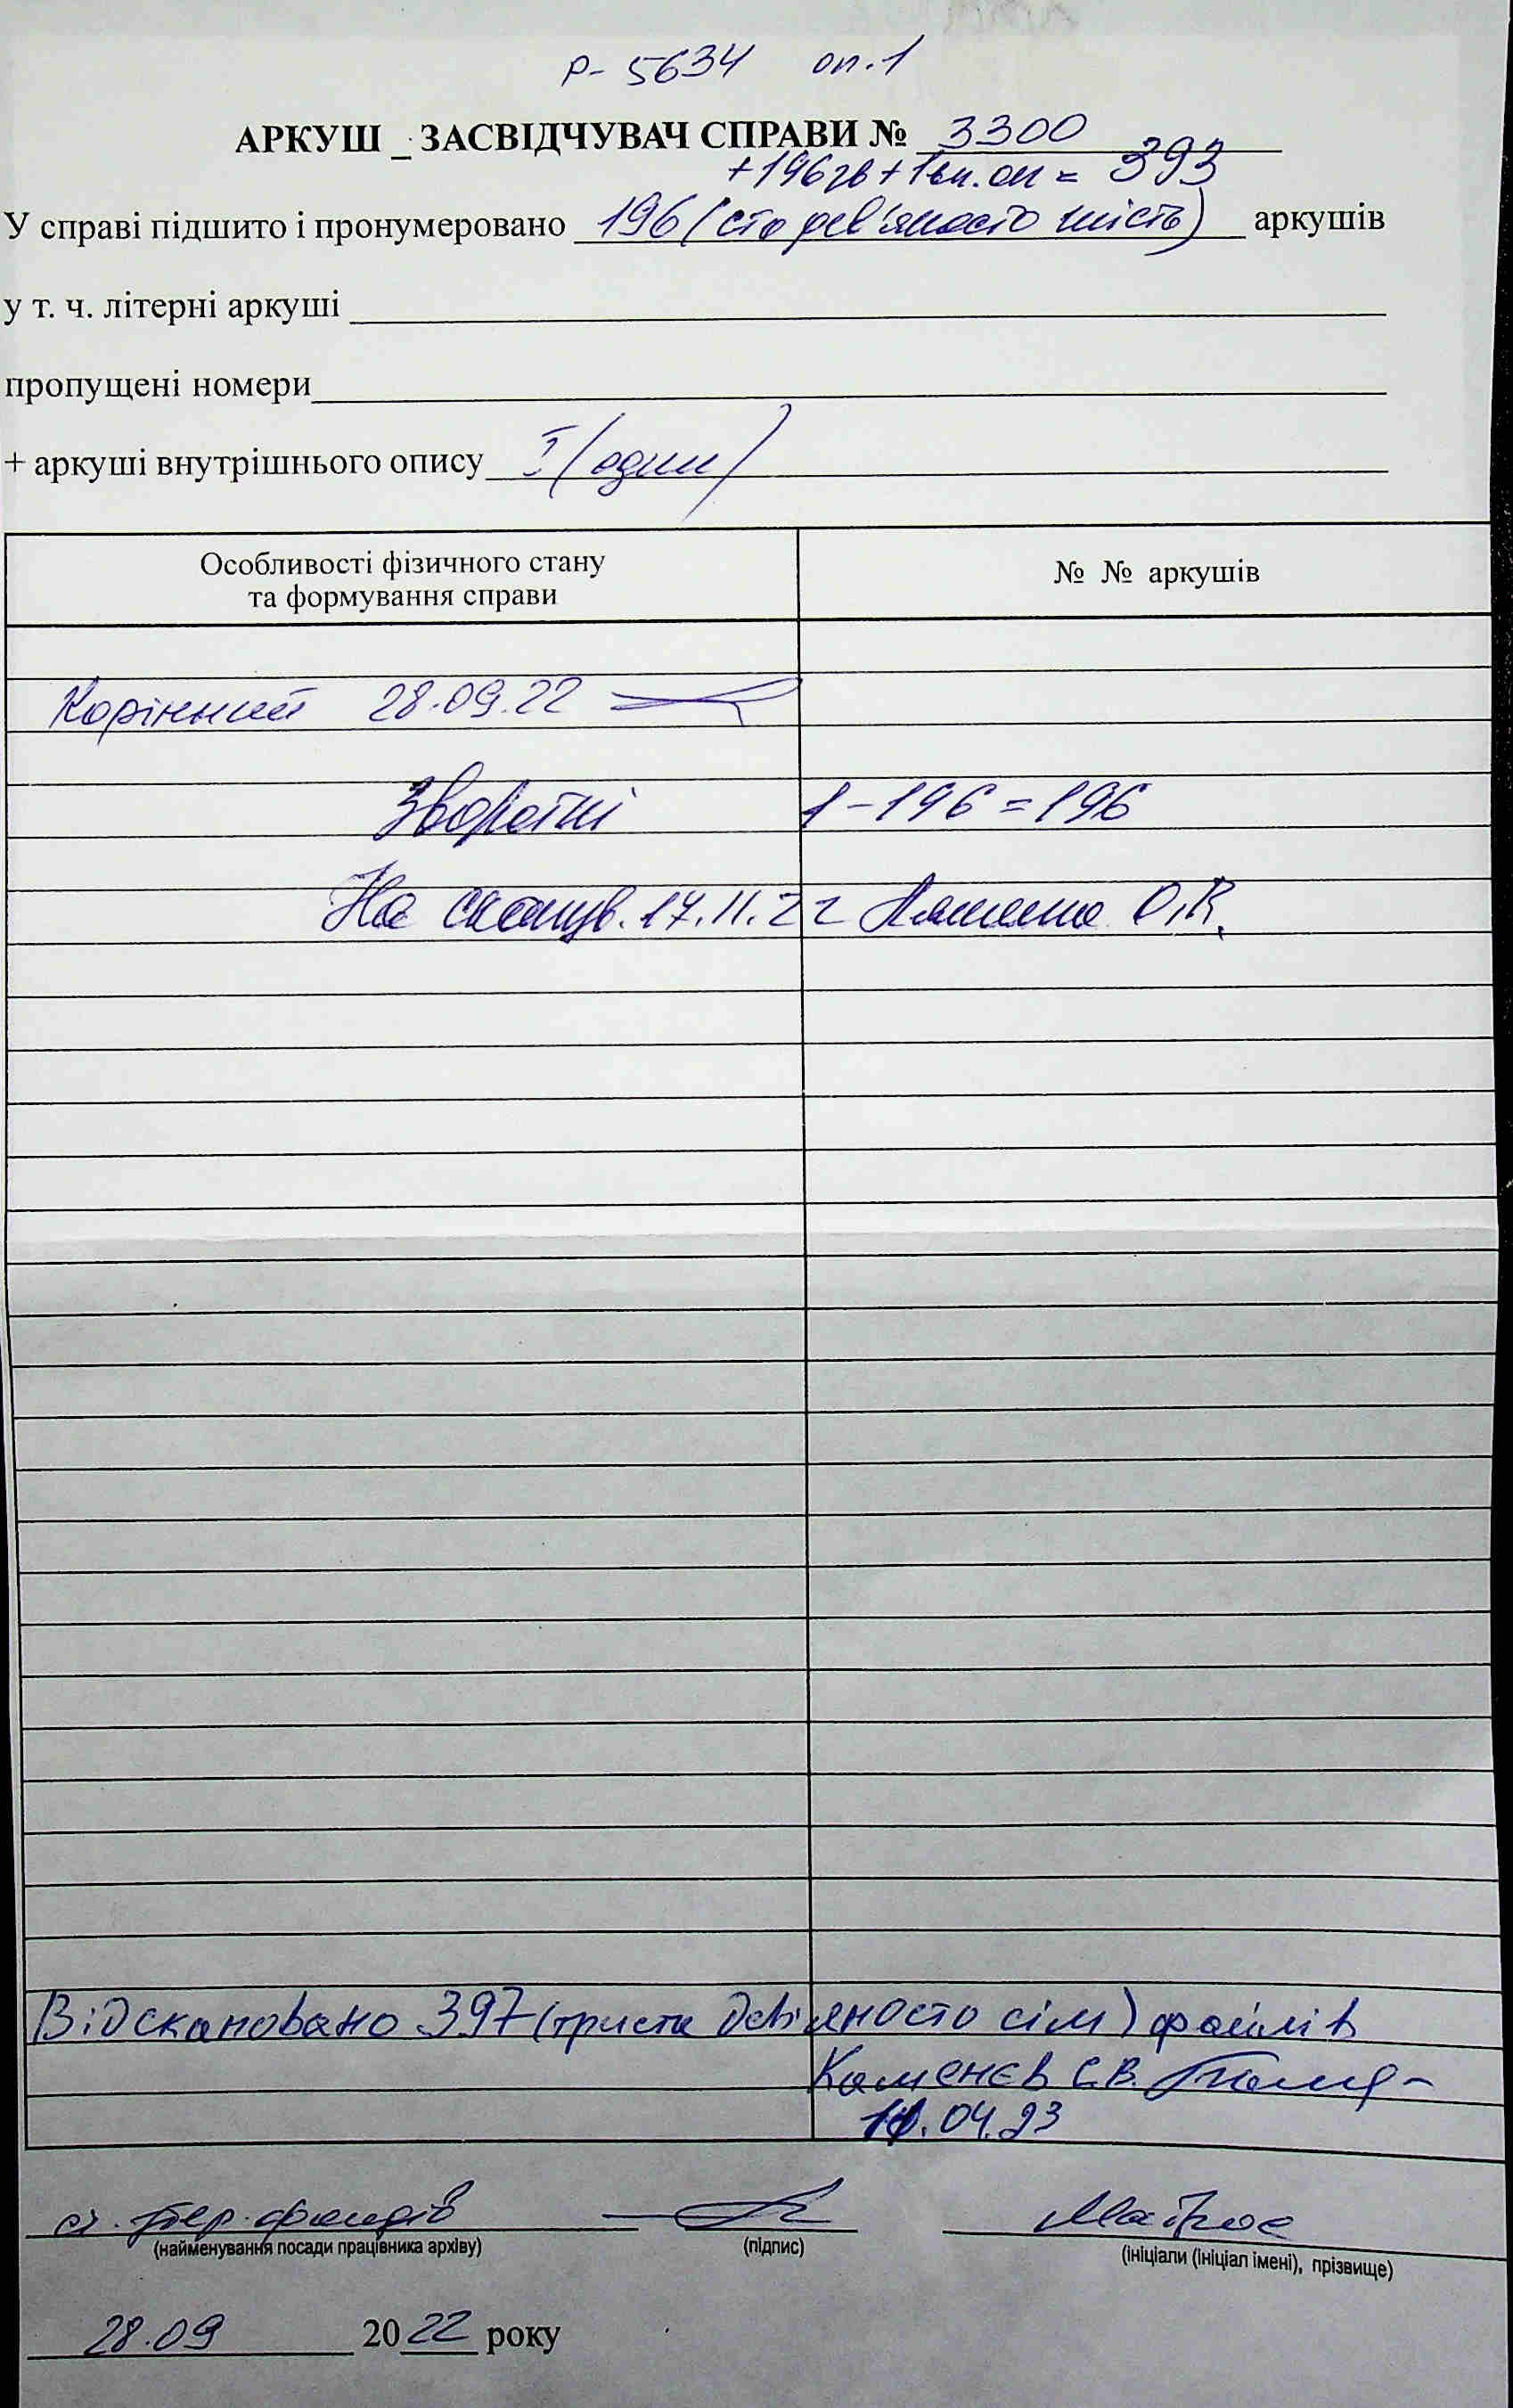 Р-5634 оп.1
АРКУШ _ ЗАСВІДЧУВАЧ СПРАВИ № 3300
+196зв + 1вн. оп = 393
У справі підшито і пронумеровано 196 (сто дев'яносто шість) аркушів
у т. ч. літерні аркуші
пропущені номери
+ аркуші внутрішнього опису I (один)
Особливості фізичного стану та формування справи
№ № аркушів
Корінний 28.09.22
Зворотні 1-196=196
На сканув. 17.11.22 О.В.
Відскановано 397 (триста девіяносто сім) файлів
Каменєв С.В.
.04.23
ст. фондів
(найменування посади працівника архіву) (підпис) (ініціали (ініціал імені), прізвище)
28.09 2022 року